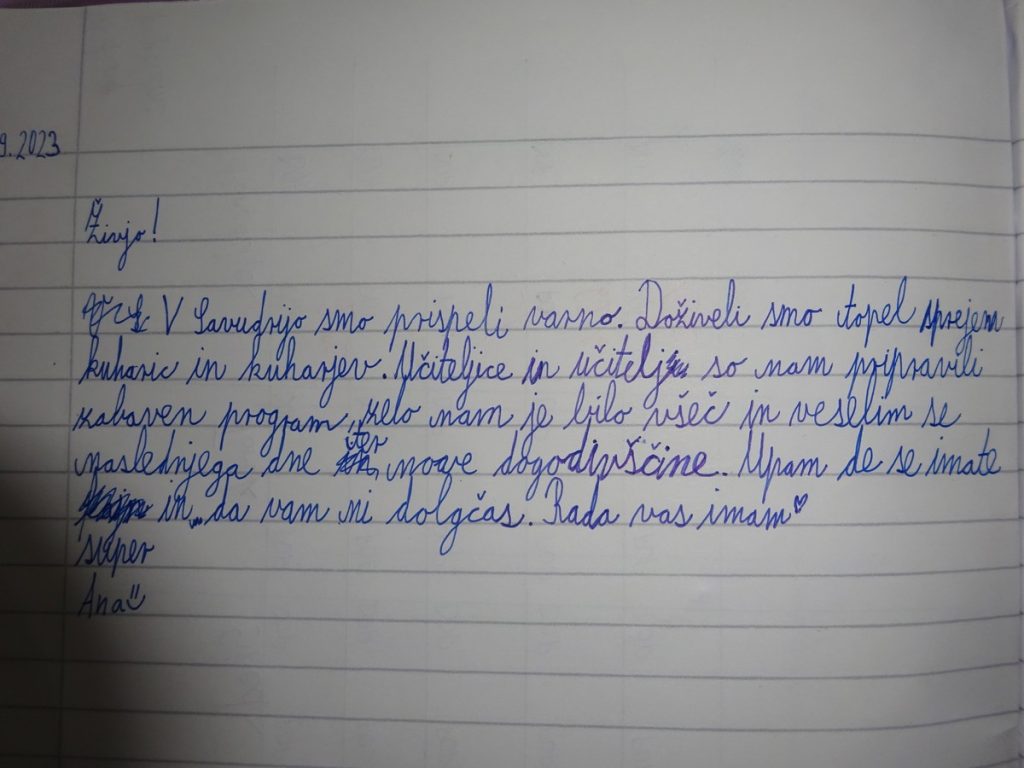 9.2023
Živjo!
V Savudrijo smo prispeli varno. Doživeli smo topel sprejem
kuharic in kuharjev. Učiteljice in učitelj so nam pripravili
zabaven program, zelo nam je bilo všeč in veselim se
naslednjega dne ter nove dogodivščine. Upam de se imate
in da vam ni dolgčas. Rada vas imam♥
super
Ana